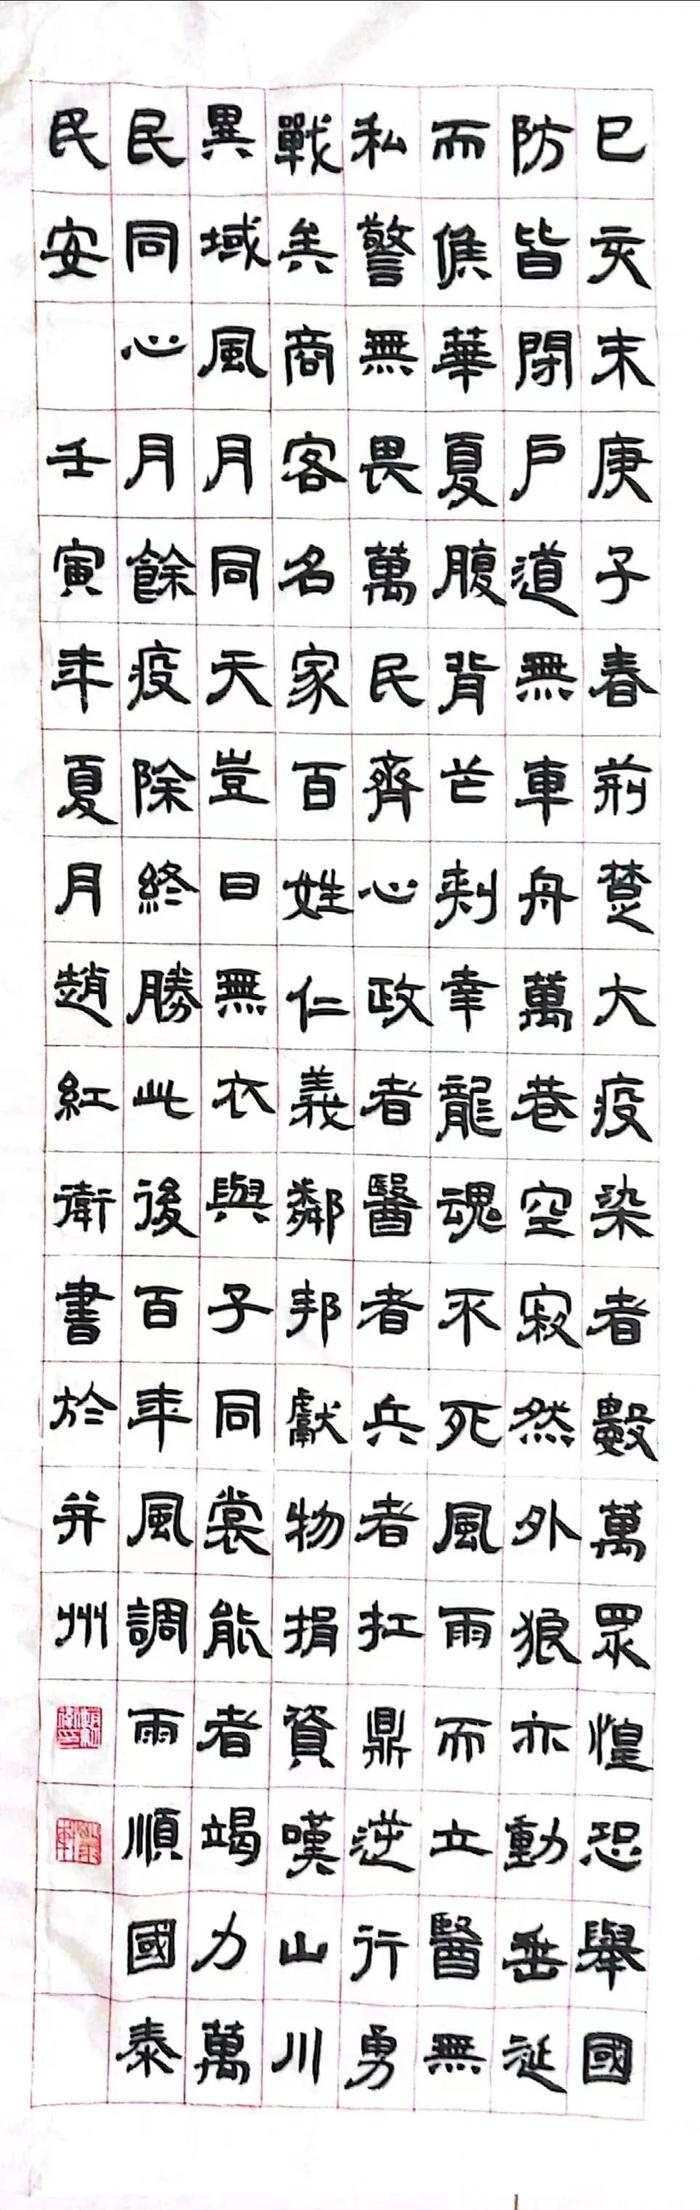 已亥末庚子春荊楚大疫染者數萬眾惶恐舉國
防皆閉戶道無車舟萬巷空寂然外狼亦動垂涎
而侯華夏腹背芒刺幸龍魂不死風雨而立醫無
私警無畏萬民齊心政者醫者兵者扛鼎逆行勇
戰矣商客名家百姓仁義鄰邦獻物捐資嘆山川
異域風月同天豈曰無衣與子同裳能者竭力萬
民同心月餘疫除終勝此後百年風調雨順國泰
民安 壬寅年夏月趙紅衛書於并州